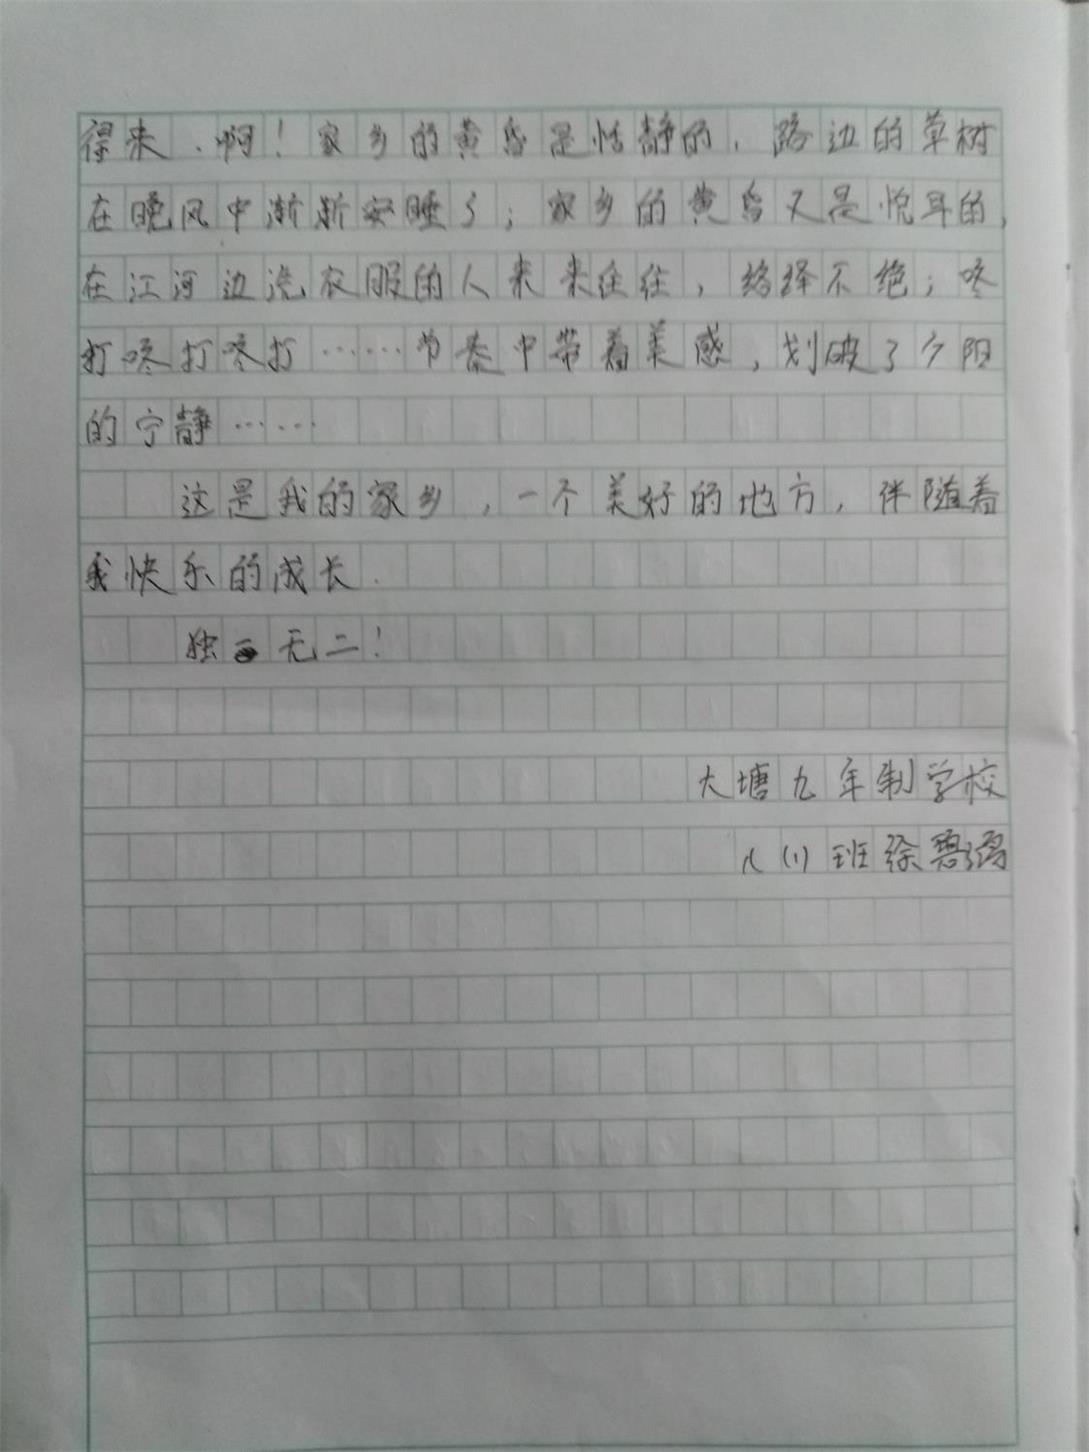 得来.啊！家乡的黄昏是恬静的，路边的草树
在晚风中渐渐安睡了；家乡的黄昏又是悦耳的，
在江河边洗衣服的人来来往往，络绎不绝；咚
打咚打咚打……节奏中带着美感，划破了夕阳
的宁静……
这是我的家乡，一个美好的地方，伴随着
我快乐的成长.
独一无二！
大塘九年制学校
八(1)班徐碧